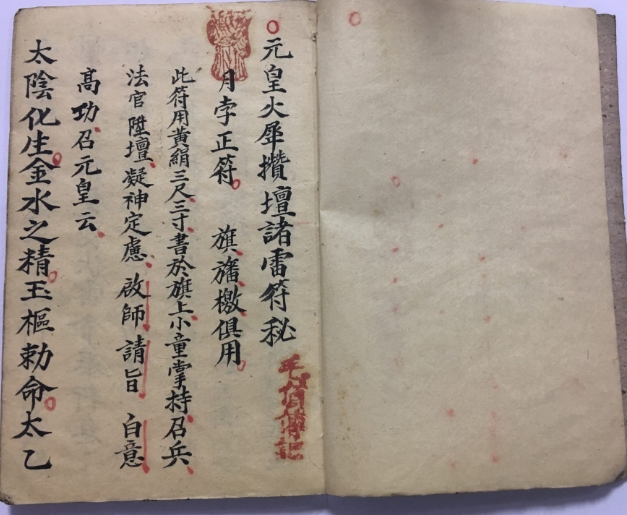 元皇火犀攢壇諸雷符秘
月孛正符 旗旛檄俱用
此符用黃絹三尺三寸書於旗上小童掌持召兵
法官陞壇凝神定慮啟師請旨白意
高功召元皇云
太陰化生金水之精玉樞勅命太乙